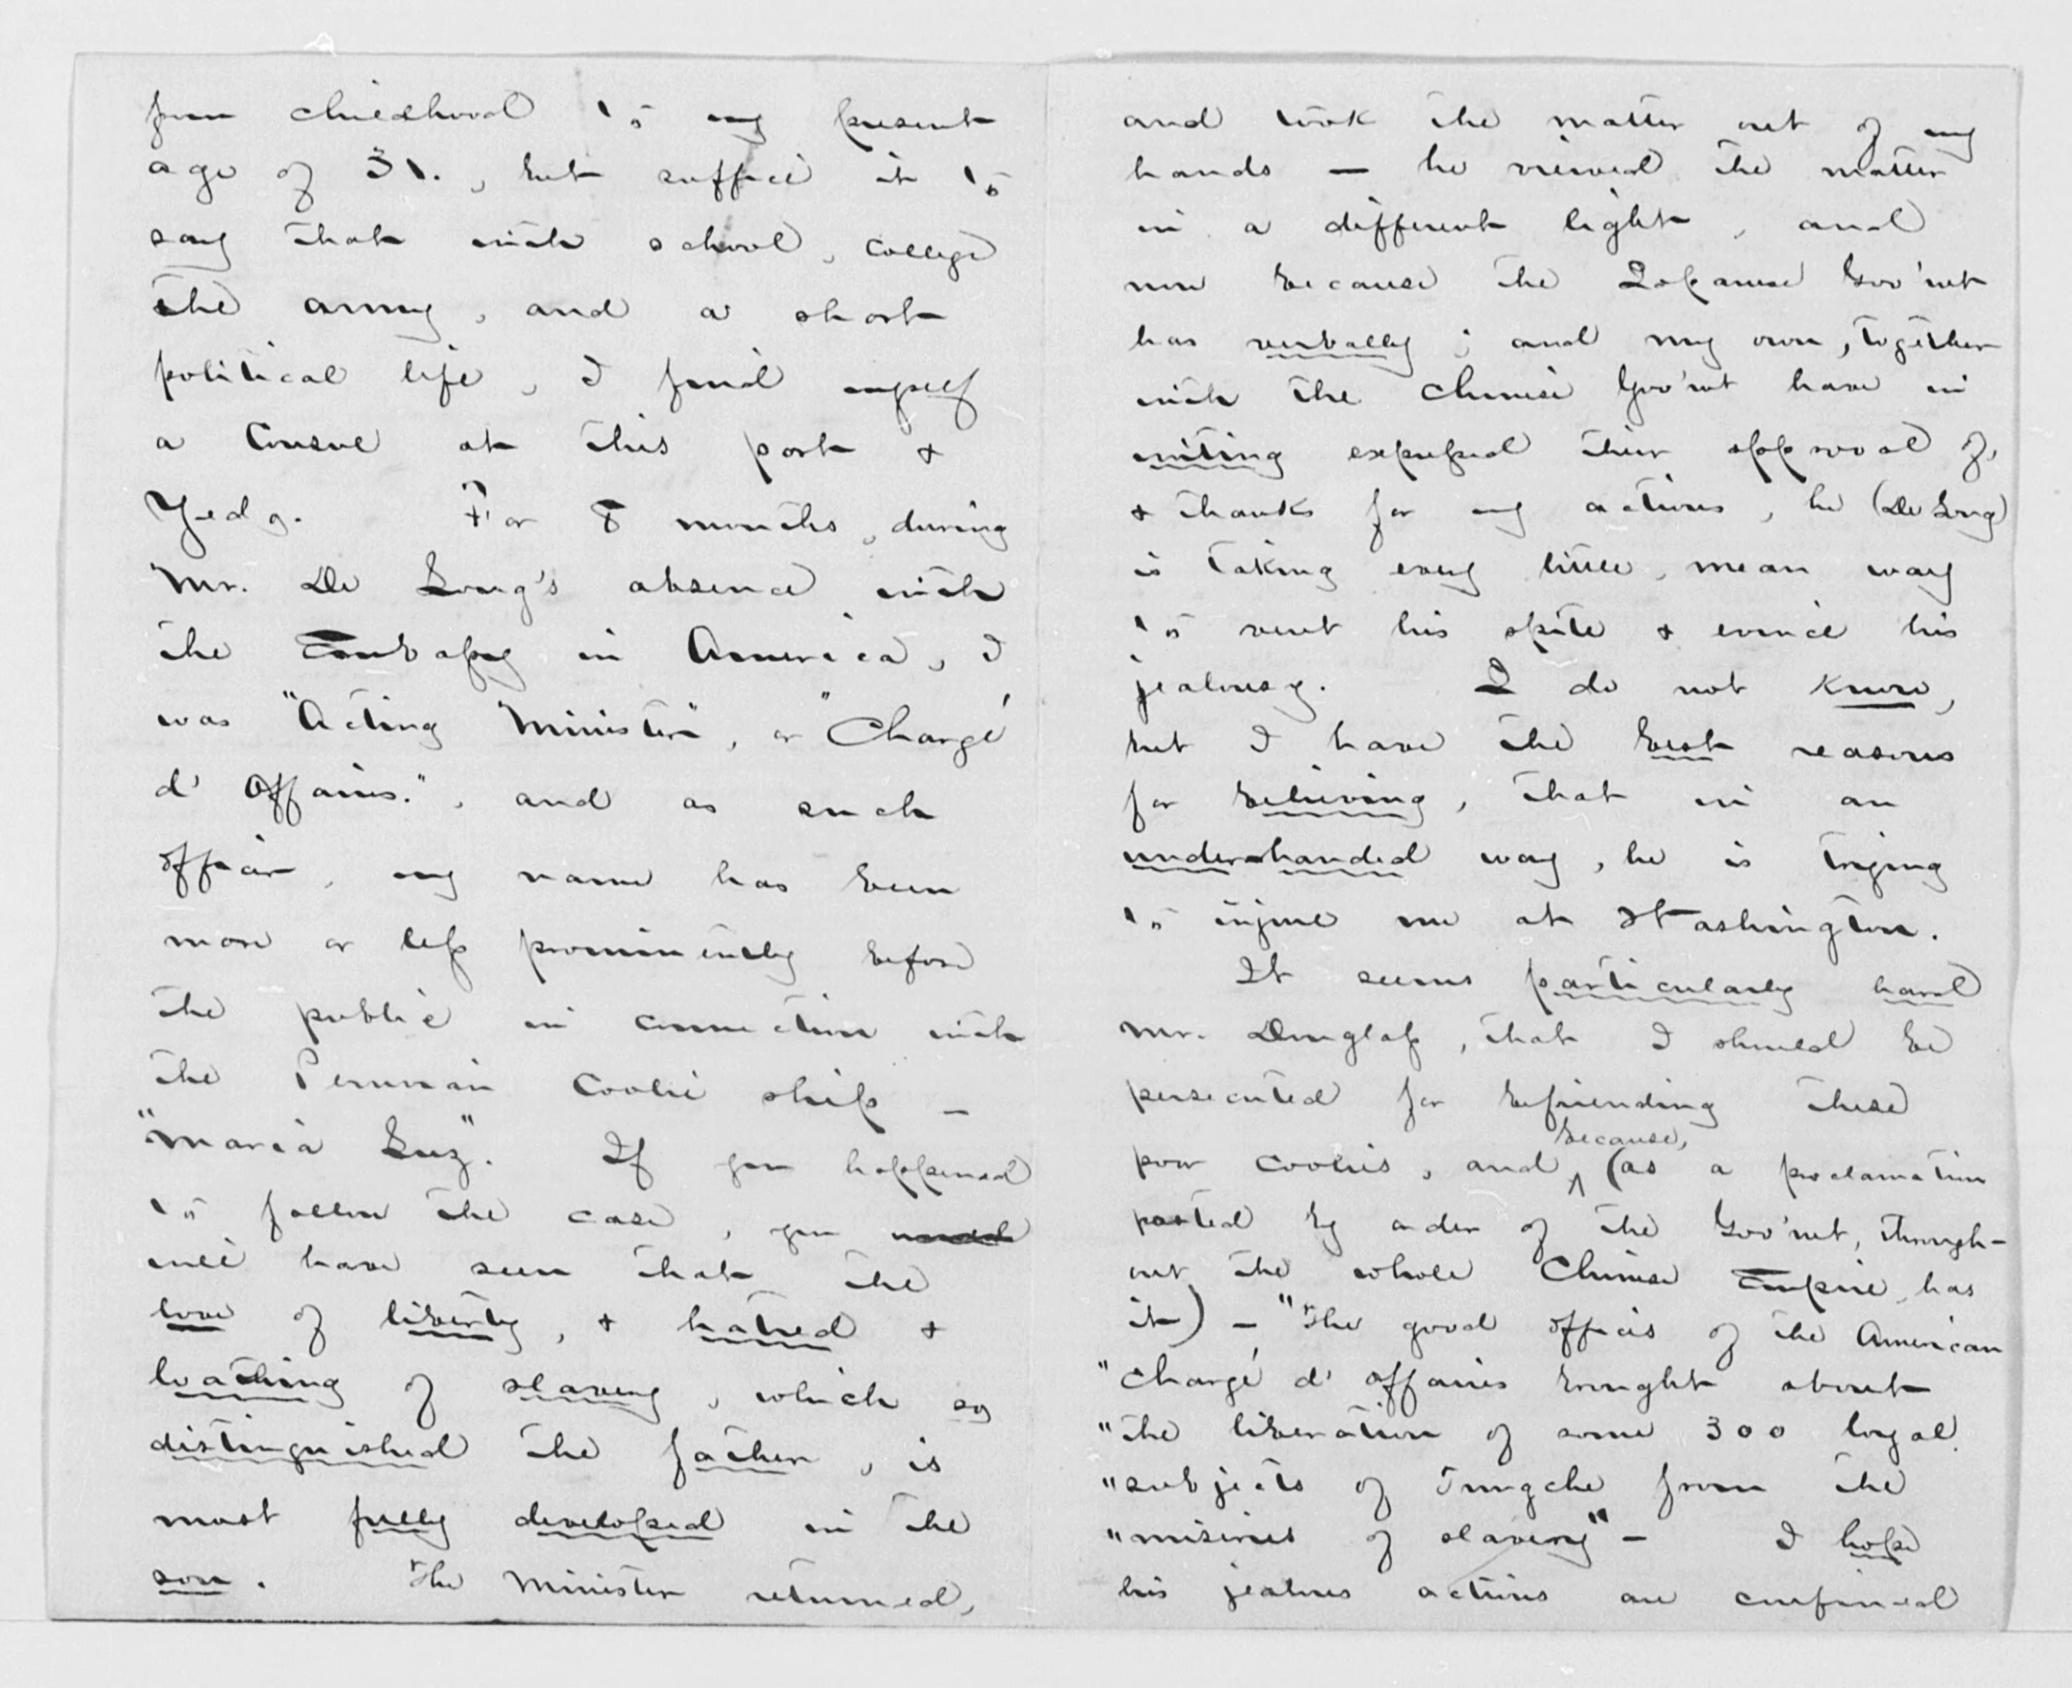 from childhood to my present
age of 31., but suffice it to
say that with school, college
the army, and a short
political life, I find myself
a Consul at this port &
Yedo. For 8 months, during
Mr. De Long's absence with
the Embassy in America, I
was "Acting Minister", or "Chargé
d' Affaires.", and as such
officer, my name has been
more or less prominently before
the public in connection with
the Peruvian Coolie ship —
"Maria Luz". If you happened
to follow the case, you
will have seen that the
love of liberty, & hatred &
loathing of slavery, which so
distinguished the father, is
most fully developed in the
son. The Minister returned,
and took the matter out of my
hands — he viewed the matter
in a different light, and
now because the Japanese Gov'nt
has verbally; and my own, together
with the Chinese Gov'nt have in
writing expressed their approval of,
& thanks for my actions, he (De Long)
is taking every little, mean way
to vent his spite & evince his
jealousy. I do not know,
but I have the best reasons
for believing, that in an
underhanded way, he is trying
to injure me at Washington.
It seems particularly hard
Mr. Douglass, that I should be
persecuted for befriending these
because,
poor coolies, and (as a proclamation
posted by order of the Gov'nt, through-
out the whole Chinese Empire, has
it) — "The good offices of the American
"Chargé d' Affaires brought about
"the liberation of some 300 loyal
"subjects of Tungche from the
"miseries of slavery" — I hope
his jealous actions are confined